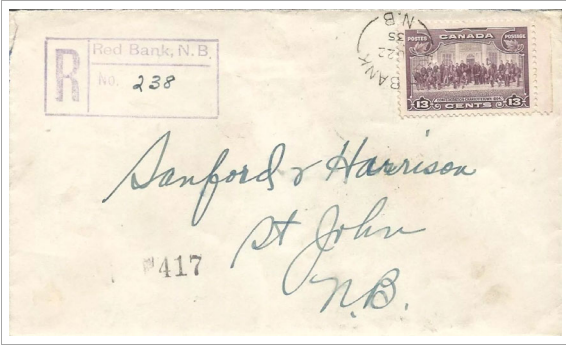 R
Red Bank, N.B.
No. 238
BANK
22
35
N.B
POSTES CANADA POSTAGE
13 CENTS 13
Sanford & Harrison
St John
N.B.
417